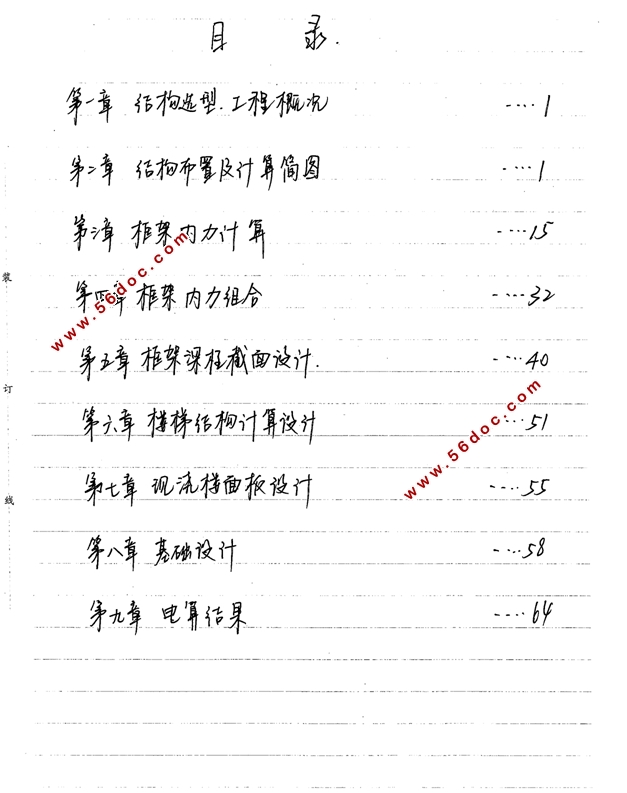 目 录.
第一章 结构选型.工程概况 ----1
第二章 结构布置及计算简图 ----1
第三章 框架内力计算 ----15
第四章 框架内力组合 ----32
第五章 框架梁柱截面设计. ----40
第六章 楼梯结构计算设计 ----51
第七章 现浇楼面板设计 ----55
第八章 基础设计 ----58
第九章 电算结果 ----64
装
订
线
www.56doc.com
www.56doc.com